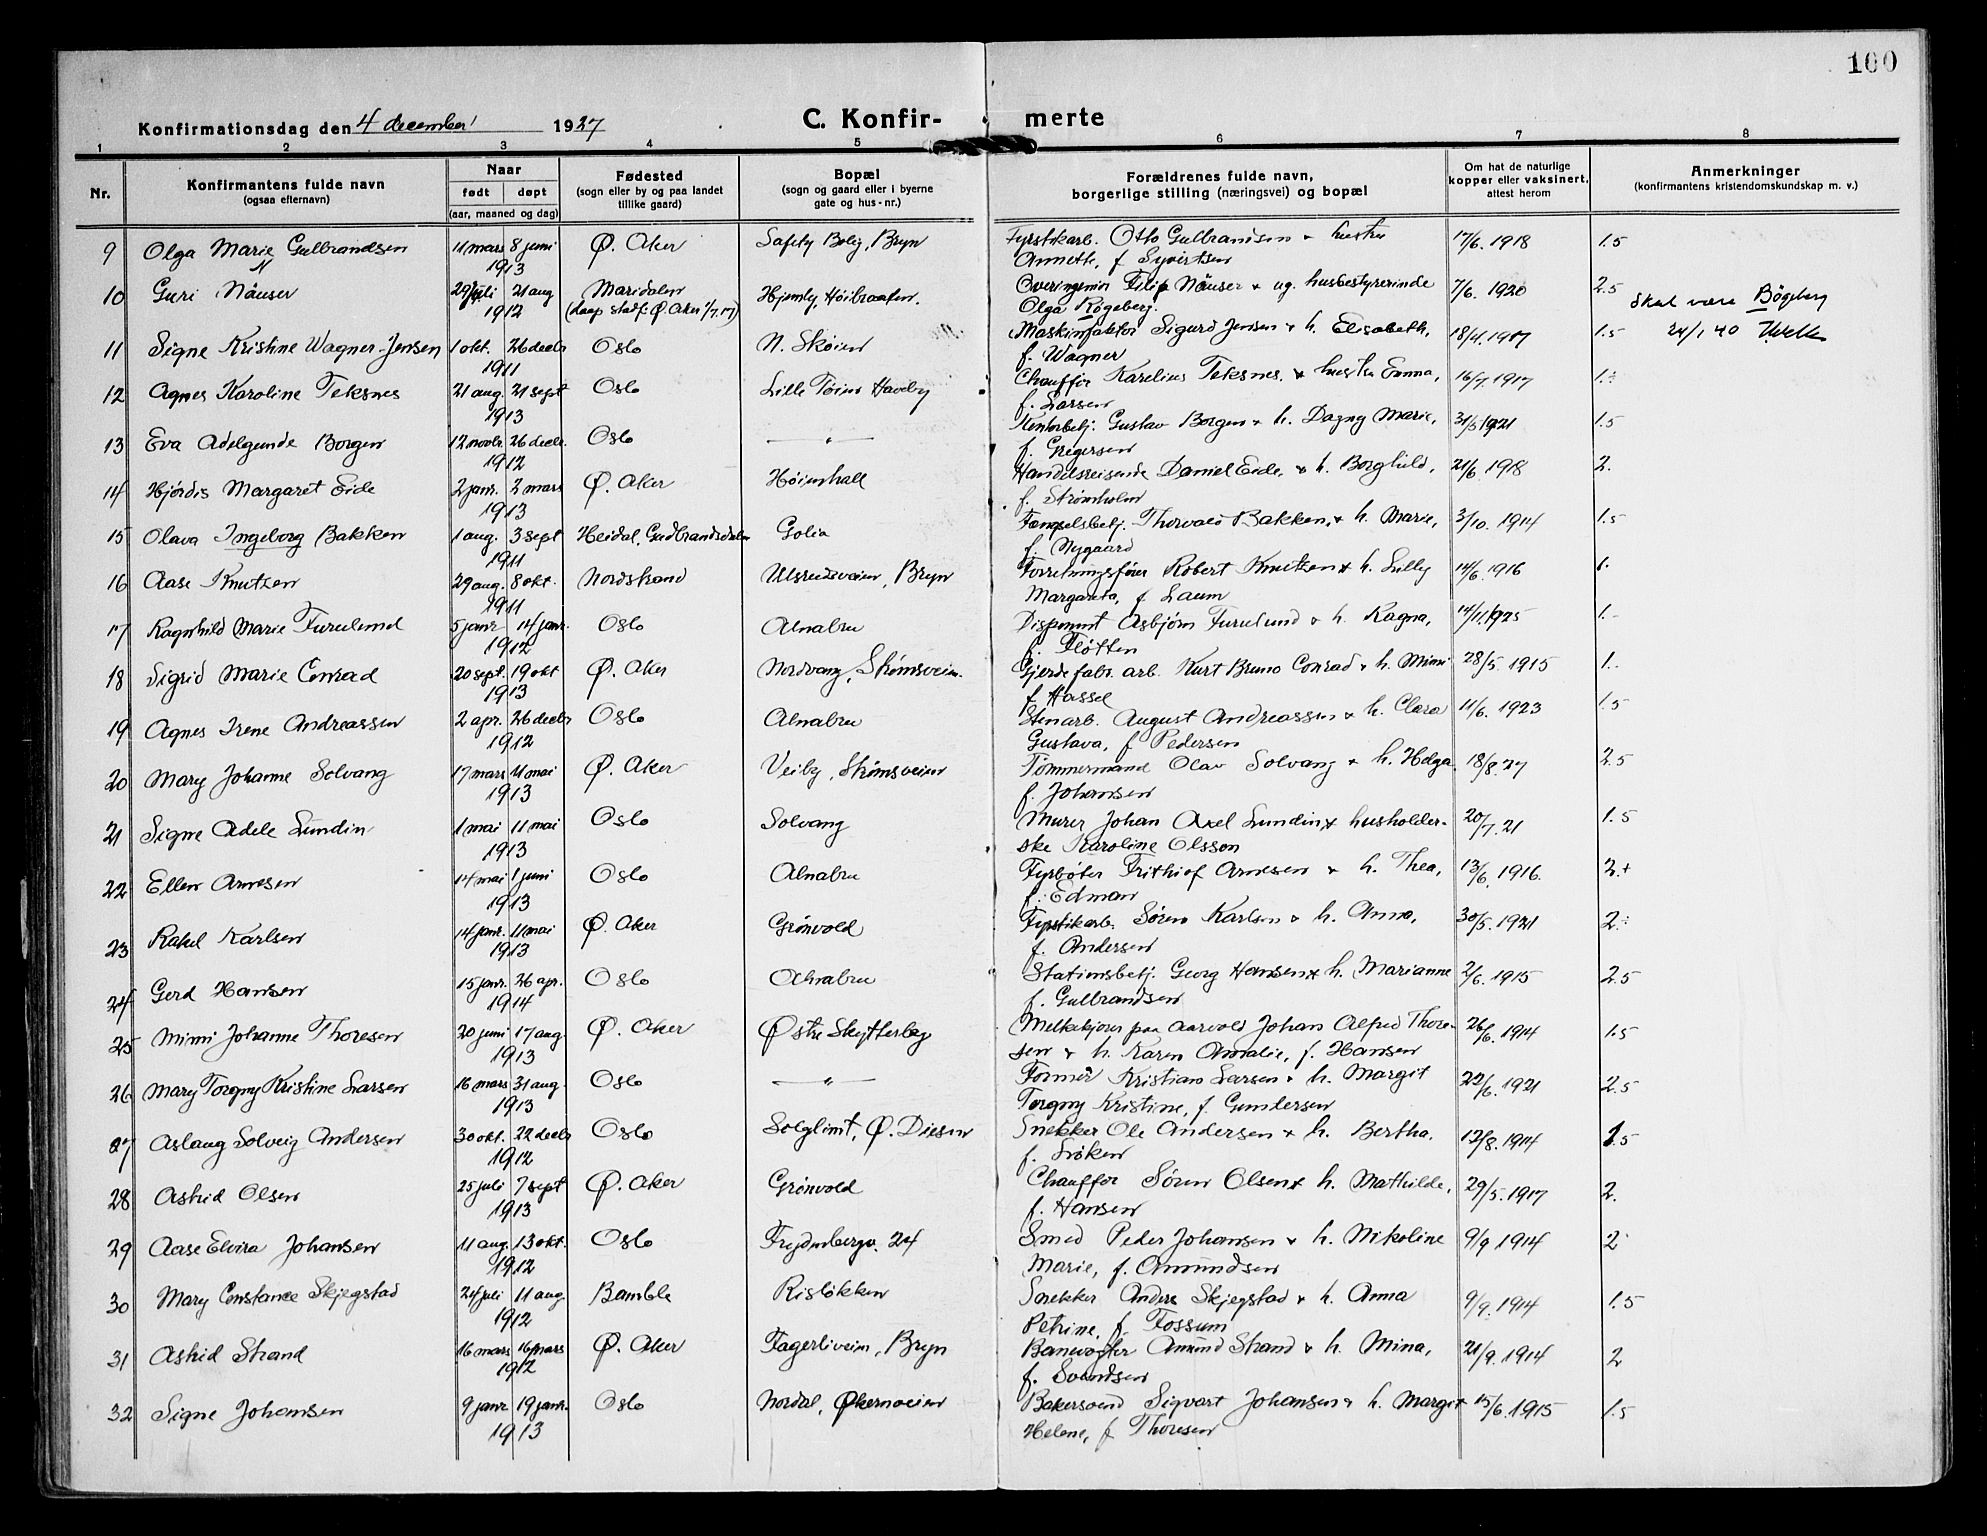 100
Konfirmationsdag den 4 december 1927 C. Konfir- merte
1 2 3 4 5 6 7 8
Nr. Konfirmantens fulde navn (ogsaa efternavn) Naar født døpt (aar, maaned og dag) Fødested (sogn eller by og paa landet tillike gaard) Bopæl (sogn og gaard eller i byerne gate og hus-nr.) Forældrenes fulde navn, borgerlige stilling (næringsvei) og bopæl Om hat de naturlige kopper eller vaksinert, attest herom Anmerkninger (konfirmantens kristendomskundskap m. v.)
9 Olga Marie Gulbrandsen 11 mars 8 juni Ø. Aker Safety Bolig, Bryn Fyrstikarb. Otto Gulbrandsen + hustru 17/6. 1918 1.5
1913 Annette, f Syvertsen
10 Guri Näuser 29 juli 21 aug Maridalen Hjemly, Høibraaten. Overingeniør Filip Näuser + ug. husbestyrerinde 7/6. 1920 2.5 Skal være Bøgeberg
1912 (daap stadf: Ø. Aker 1/7.17) Olga Røgeberg. 24/1 40
11 Signe Kristine Wagner-Jensen 1 okt. 26 decbr Oslo N. Skøien Maskinfaktor Sigurd Jensen + h. Elisabeth, 18/4. 1917 1.5
1911 f. Wagner
12 Agnes Karoline Teksnes 21 aug. 21 sept Oslo Lille Tøien Haveby Chauffør Karelius Teksnes + hustru Emma, 16/7. 1917 1.÷
1913 f. Larsen
13 Eva Adelgunde Borgen 12 novbr. 26 decbr. Oslo — " — Kontorbetj. Gustav Borgen + h. Dagny Marie, 31/5 1921 1.5
1912 f. Gregersen
14 Hjørdis Margaret Eide 2 janr. 2 mars Ø. Aker Høienhall Handelsreisende Daniel Eide, + h. Borghild, 21/6. 1918 2.
1913 f. Strømholm
15 Olava Ingeborg Bakken 1 aug. 3 sept Heidal, Gudbrandsdalen Golia Fængselsbetj. Thorvald Bakken, + h. Marie, 3/10. 1914 1.5
1911 f. Nygaard
16 Aase Knutzen 29 aug. 8 okt. Nordstrand Ulsrudsveien, Bryn Forretningsfører Robert Knutzen + h. Lilly 14/6. 1916 1.
1911 Margareta, f Laum
17 Ragnhild Marie Furulund 5 janr 14 janr. Oslo Alnabru Disponent Asbjørn Furulund + h. Ragna, 14/11. 1925 1.-
1912 f. Fløtten
18 Sigrid Marie Conrad 20 sept. 19 okt Ø. Aker Nordvang, Strømsveien. Gjerdefabr. arb. Kurt Bruno Conrad + h. Mimi 28/5. 1915 1..
1913 f Hassel
19 Agnes Irene Andreassen 2 apr. 26 decbr Oslo Alnabru Stenarb. August Andreassen + h. Clara 11/6. 1923 1.5
1912 Gustava, f Pedersen
20 Mary Johanne Solvang 17 mars 11 mai Ø. Aker Veiby, Strømsveien Tømmermand Olav Solvang + h. Helga, 18/8. 27 2.5
1913 f. Johansen
21 Signe Adele Lundin 1 mai 11 mai Oslo Solvang Murer Johan Axel Lundin, + husholder- 20/7. 21 1.5
1913 ske Karoline Olsson
22 Ellen Arnesen 14 mai 1 juni Oslo Alnabru Fyrbøter Frithiof Arnesen + h. Thea, 13/6. 1916. 2.+
1913 f. Edman
23 Rakel Karlsen 14 janr. 11 mai Ø. Aker Grønvold Fyrstikarb. Søren Karlsen + h. Anna, 30/5. 1921 2.÷
1913 f. Andersen
24 Gerd Hansen 15 janr. 26 apr. Oslo Alnabru Stationsbetj. Georg Hansen + h. Marianne 2/6. 1915 2.5
1914 f. Gulbrandsen
25 Mimi Johanne Thoresen 20 juni 17 aug. Ø. Aker Østre Skytterlag Melkekjører paa Aarvold Johan Alfred Thore- 26/6. 1914 1.5
1913 sen + h. Karen Amalie, f. Hansen
26 Mary Torgny Kristine Larsen 16 mars 31 aug. Oslo — " — Former Kristian Larsen + h. Margit 22/6. 1921 2.5
1913 Torgny Kristine, f. Gundersen
27 Aslaug Solveig Andersen 30 okt. 22 decbr Oslo Solglimt, Ø. Disen Snekker Ole Andersen + h. Bertha, 12/8. 1914 1.5
1912 f. Løken
28 Astrid Olsen 25 juli 7 sept Ø. Aker Grønvold Chauffør Søren Olsen + h. Mathilde, 29/5. 1917 2.
1913 f. Hansen
29 Aase Elvira Johansen 11 aug. 13 okt. Oslo Frydenbergv. 24 Smed Peder Johansen + h. Nikoline 9/9 1914 2
1912 Marie, f. Amundsen
30 Mary Constance Skjegstad 24 juli 11 aug. Bamble Risløkken Snekker Anders Skjegstad + h. Anna 9/9. 1914 1.5
1912 Petrine, f. Fossum
31 Astrid Strand 16 mars 16 mars Ø. Aker Fagerliveien, Bryn Banevogter Amund Strand + h. Mina, 21/9. 1914 2
1912 f. Svendsen
32 Signe Johansen 9 janr 19 janr. Oslo Nordal, Økernveien Bakersvend Sigvart Johansen + h. Margit 15/6. 1915 1.5
1913 Helene, f Thoresen